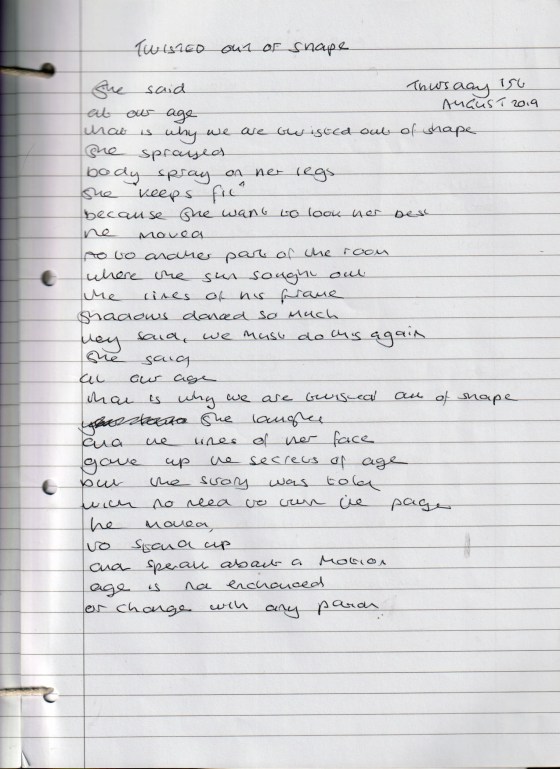 TWISTED OUT OF SHAPE
She said
Thursday 15th
AUGUST 2019
at our age
that is why we are twisted out of shape
She sprayed
body spray on her legs
She keeps fit
because she want to look her best
he moved
to another part of the room
where the sun sought out
the lines of his frame
Shadows danced so much
they said, we must do this again
She said
at our age
that is why we are twisted out of shape
She laughed
and the lines of her face
gave up the secrets of age
but the story was told
with no need to turn the page
he moved,
to stand up
and speak about a motion
age is not enchanced
or change with any